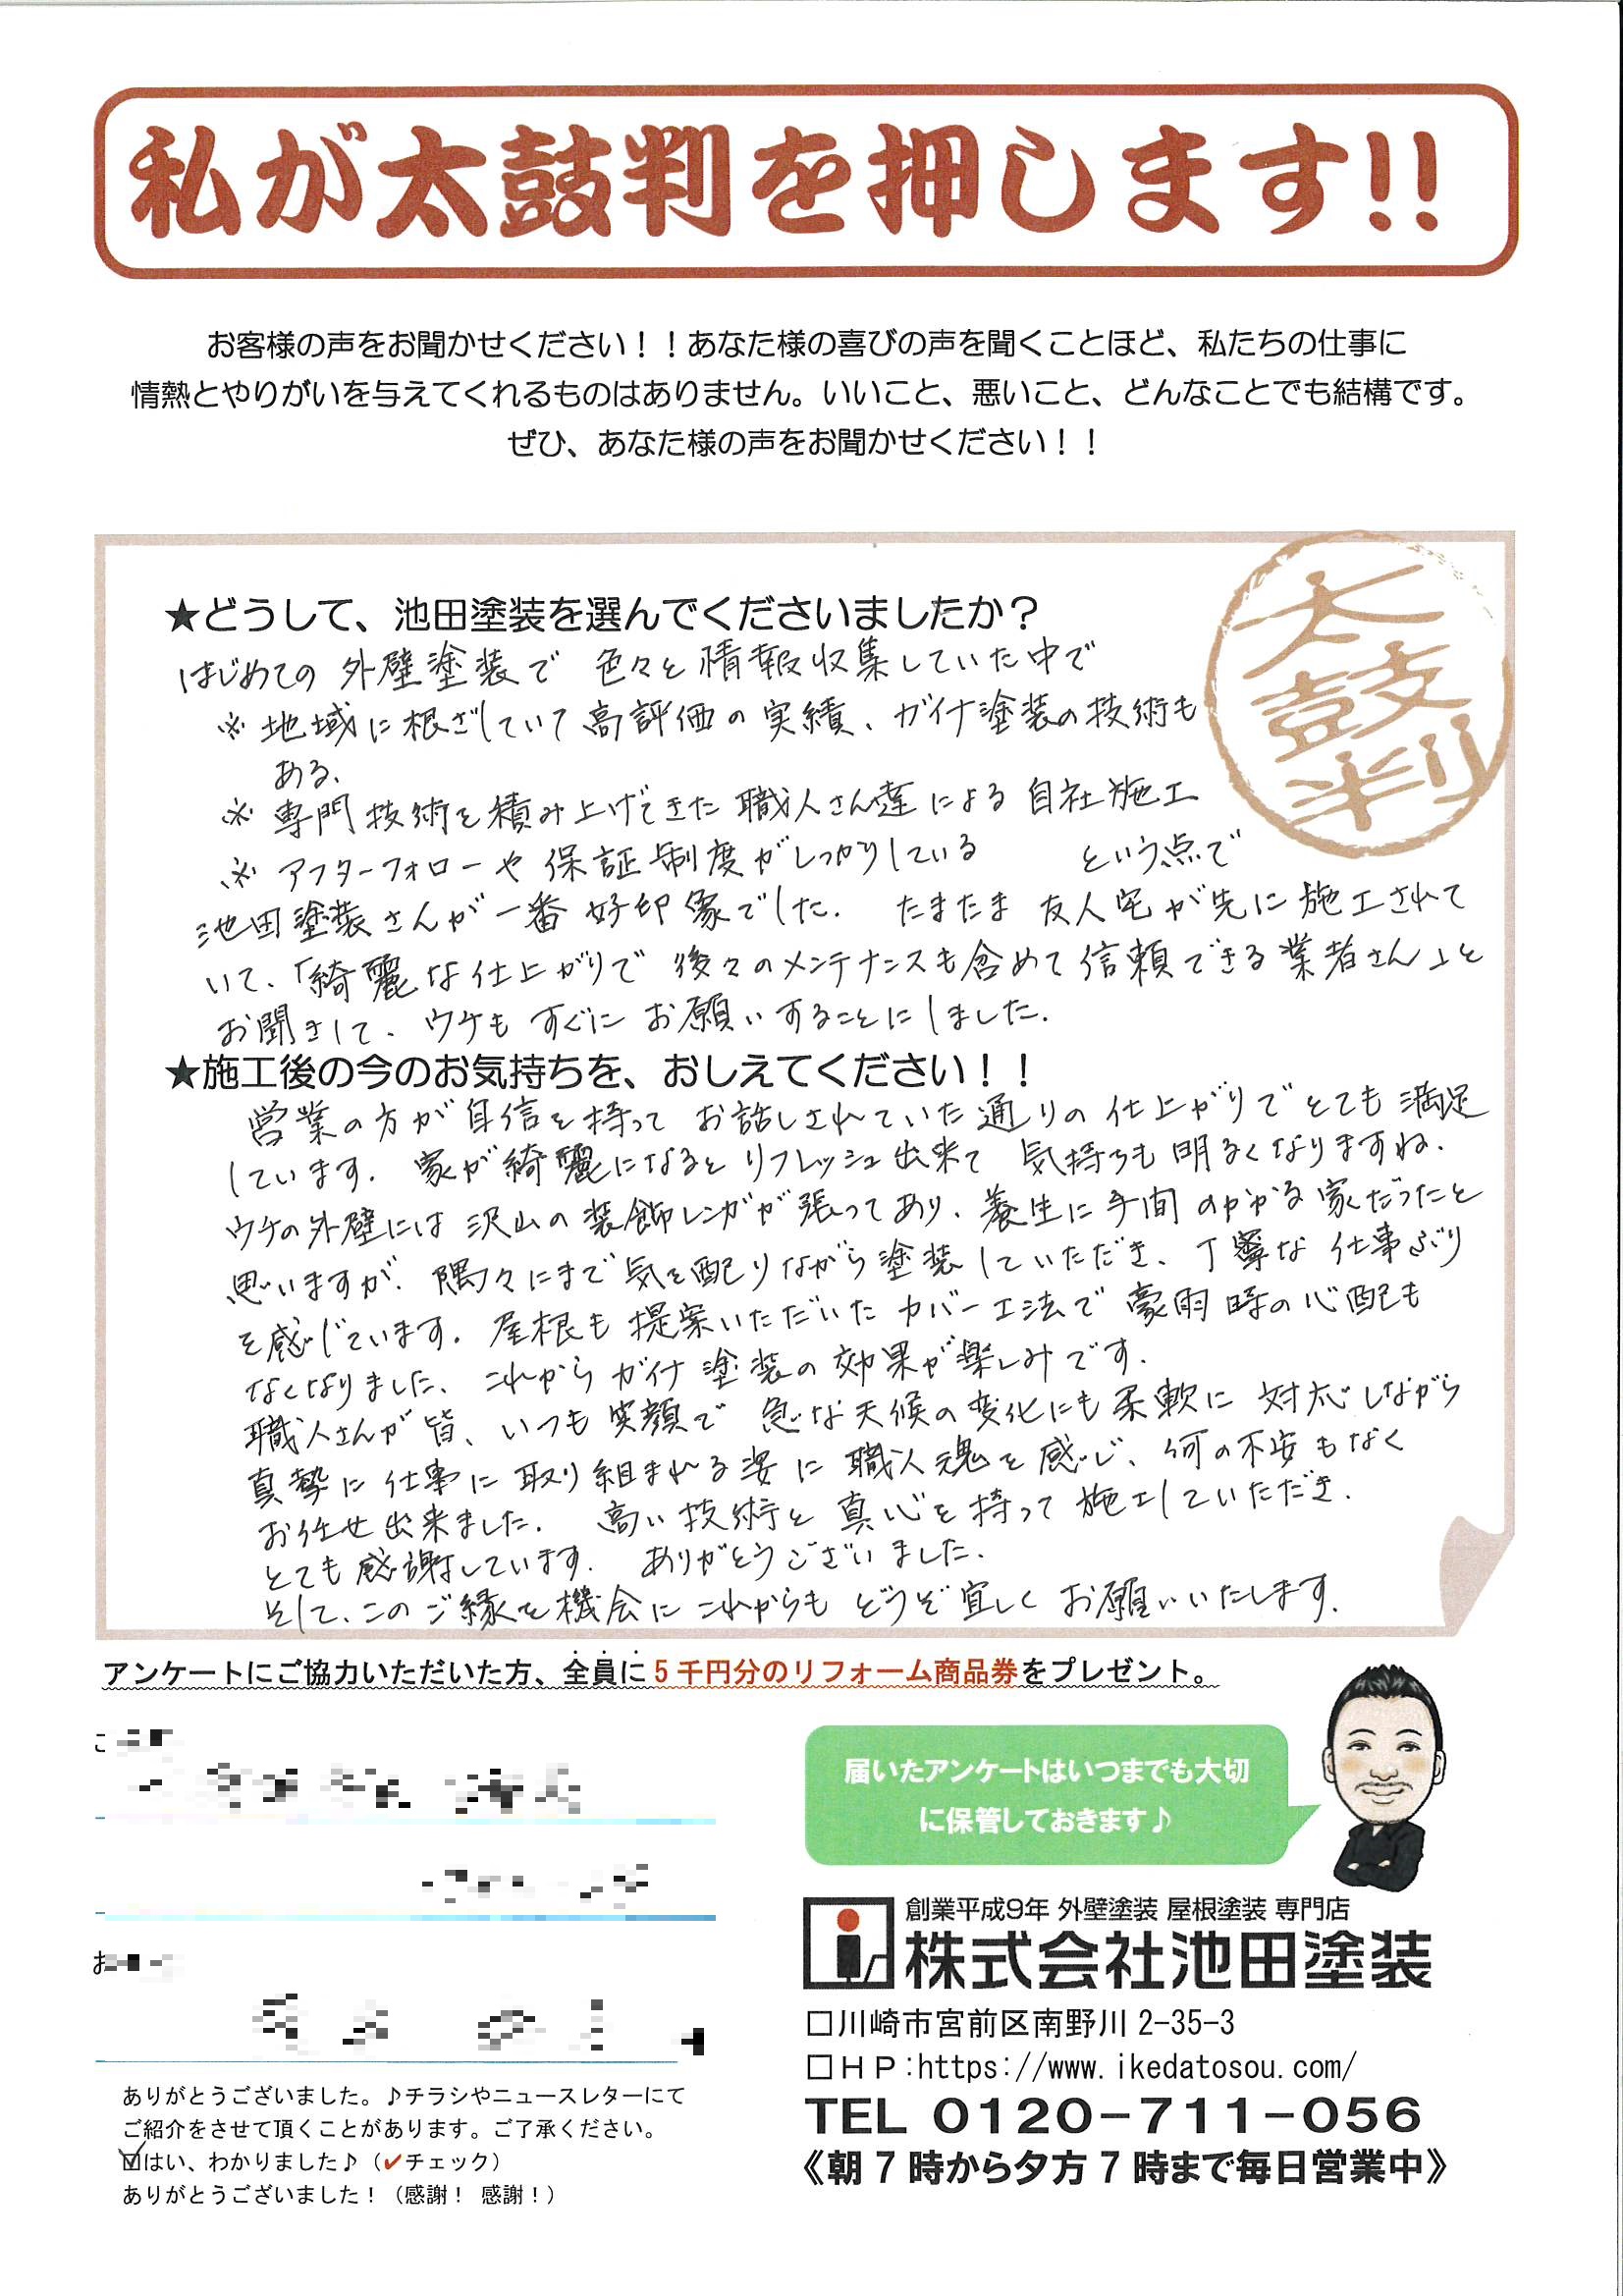 私が太鼓判を押します!!
お客様の声をお聞かせください！！あなた様の喜びの声を聞くことほど、私たちの仕事に
情熱とやりがいを与えてくれるものはありません。いいこと、悪いこと、どんなことでも結構です。
ぜひ、あなた様の声をお聞かせください！！
太鼓判
★どうして、池田塗装を選んでくださいましたか？
はじめての 外壁塗装で 色々と情報収集していた中で
※ 地域に根ざしていて高評価の実績、ガイナ塗装の技術も
ある.
※ 専門技術を積み上げてきた職人さん達による 自社施工
※ アフターフォローや保証制度がしっかりしている という点で
池田塗装さんが一番好印象でした. たまたま 友人宅が先に施工されて
いて、「綺麗な仕上がりで 後々のメンテナンスも含めて信頼できる業者さん」と
お聞きして、ウチも すぐに お願いすることにしました.
★施工後の今のお気持ちを、おしえてください！！
営業の方が自信を持って お話しされていた通りの仕上がりでとても満足
しています. 家が綺麗になるとリフレッシュ出来て 気持ちも明るくなりますね.
ウチの外壁には沢山の装飾レンガが張ってあり、養生に手間のかかる家だったと
思いますが、隅々にまで気を配りながら塗装していただき、丁寧な仕事ぶり
を感じています. 屋根も提案いただいたカバー工法で豪雨時の心配も
なくなりました、これからガイナ塗装の効果が楽しみです.
職人さんが皆、いつも笑顔で 急な天候の変化にも柔軟に対応しながら
真摯に仕事に取り組まれる姿に職人魂を感じ、何の不安もなく
お任せ出来ました. 高い技術と真心を持って施工していただき.
とても感謝しています. ありがとうございました.
そして、このご縁を機会にこれからもどうぞ宜しくお願いいたします.
アンケートにご協力いただいた方、全員に５千円分のリフォーム商品券をプレゼント。
届いたアンケートはいつまでも大切
に保管しておきます♪
創業平成9年 外壁塗装 屋根塗装 専門店
株式会社池田塗装
□川崎市宮前区南野川 2-35-3
□ＨＰ:https://www.ikedatosou.com/
TEL 0120-711-056
《朝７時から夕方７時まで毎日営業中》
ありがとうございました。♪チラシやニュースレターにて
ご紹介をさせて頂くことがあります。ご了承ください。
☑はい、わかりました♪（✓チェック）
ありがとうございました！（感謝！ 感謝！）